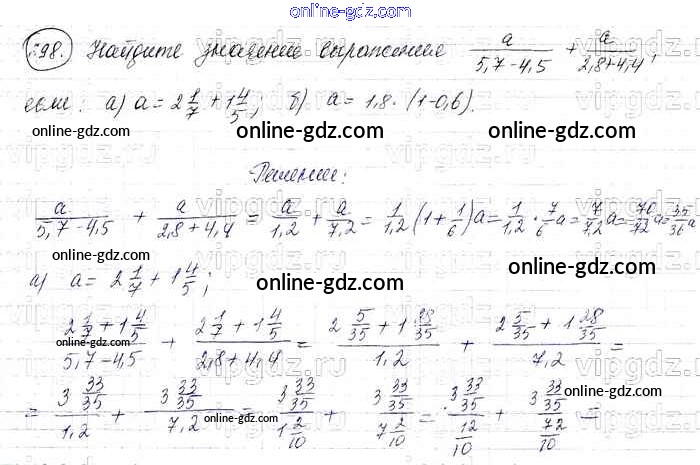 online-gdz.com
598. Найдите значение выражения a/(5,7-4,5) + a/(2,8+4,4),
если: а) a = 2 1/7 + 1 4/5; б) a = 1,8 · (1-0,6).
online-gdz.com online-gdz.com online-gdz.com
Решение:
a/(5,7-4,5) + a/(2,8+4,4) = a/1,2 + a/7,2 = 1/1,2 · (1 + 1/6)a = 1/1,2 · 7/6 a = 7/7,2 a = 70/72 a = 35/36 a
а) a = 2 1/7 + 1 4/5;
online-gdz.com online-gdz.com
(2 1/7 + 1 4/5)/(5,7-4,5) + (2 1/7 + 1 4/5)/(2,8+4,4) = (2 5/35 + 1 28/35)/1,2 + (2 5/35 + 1 28/35)/7,2 =
online-gdz.com online-gdz.com
= (3 33/35)/1,2 + (3 33/35)/7,2 = (3 33/35)/(1 2/10) + (3 33/35)/(7 2/10) = (3 33/35)/(12/10) + (3 33/35)/(72/10) =
online-gdz.com online-gdz.com online-gdz.com